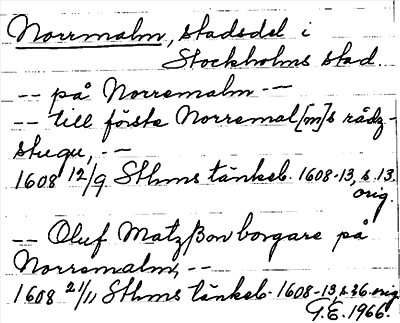 Norrmalm, stadsdel i
Stockholms stad.
-- på Norremalm --
-- till förste Norremal[m]s rådz-
stugu, --
1608 12/9 Sthms tänkeb. 1608-13, s. 13,
orig.
-- Oluf Matzßon borgare på
Norremalm, --
1608 21/11 Sthms tänkeb. 1608-13, s. 36. orig
G.E. 1966.